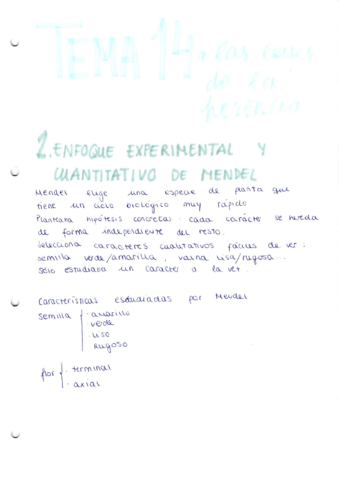 TEMA 14: las leyes
de la
herencia
2. ENFOQUE EXPERIMENTAL Y
CUANTITATIVO DE MENDEL
Mendel elige una especie de planta que
tiene un ciclo biológico muy rápido
Planteaba hipótesis concretas: cada carácter se hereda
de forma independiente del resto.
Selecciona caracteres cualitativos fáciles de ver:
semilla verde/amarilla, vaina lisa/rugosa...
Sólo estudiaba un caracter a la vez.
Características estudiadas por Mendel
Semilla { · amarillo
verde
· liso
Rugoso
flor { · terminal
· axial